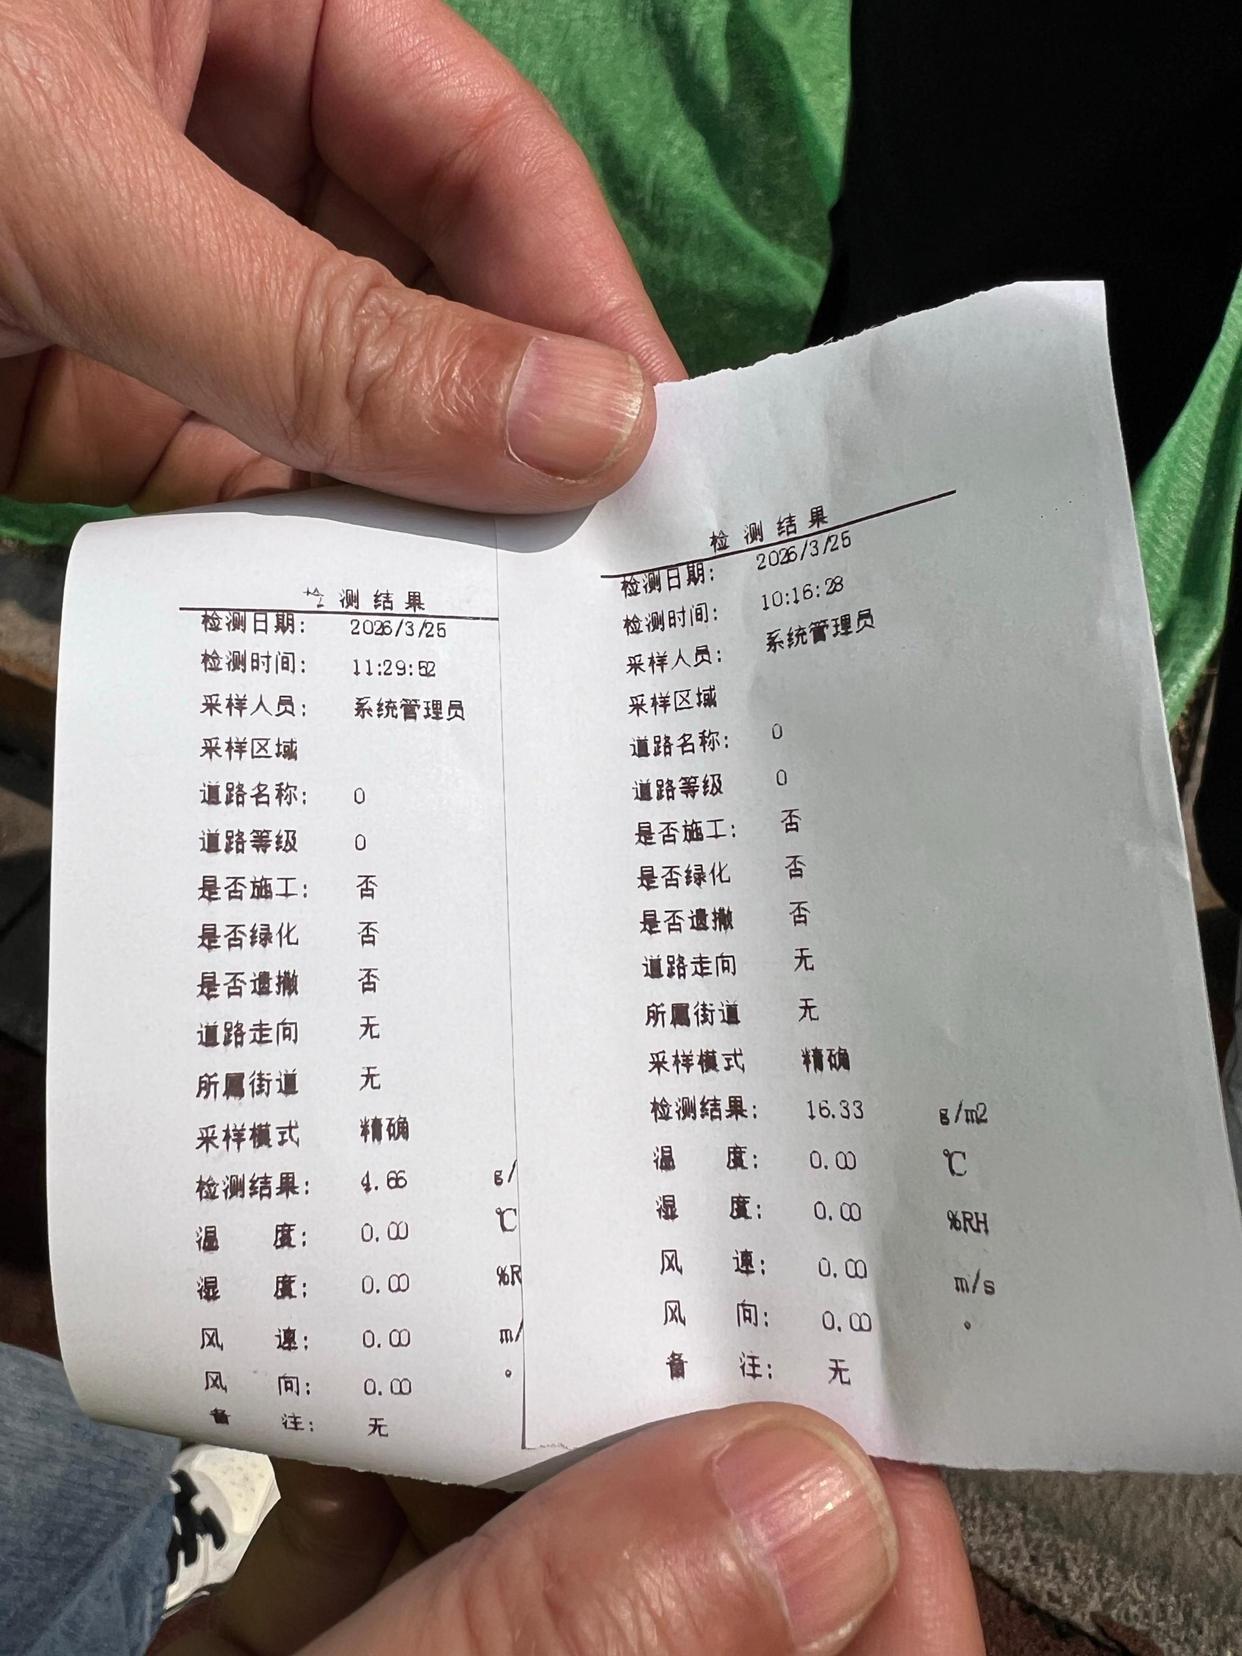 检测结果
检测日期: 2026/3/25
检测时间: 11:29:52
采样人员: 系统管理员
采样区域
道路名称: 0
道路等级 0
是否施工: 否
是否绿化 否
是否遗撒 否
道路走向 无
所属街道 无
采样模式 精确
检测结果: 4.66 g/
温 度: 0.00 ℃
湿 度: 0.00 %R
风 速: 0.00 m/
风 向: 0.00 °
备 注: 无
检测结果
检测日期: 2026/3/25
检测时间: 10:16:28
采样人员: 系统管理员
采样区域
道路名称: 0
道路等级 0
是否施工: 否
是否绿化 否
是否遗撒 否
道路走向 无
所属街道 无
采样模式 精确
检测结果: 16.33 g/m2
温 度: 0.00 ℃
湿 度: 0.00 %RH
风 速: 0.00 m/s
风 向: 0.00 °
备 注: 无